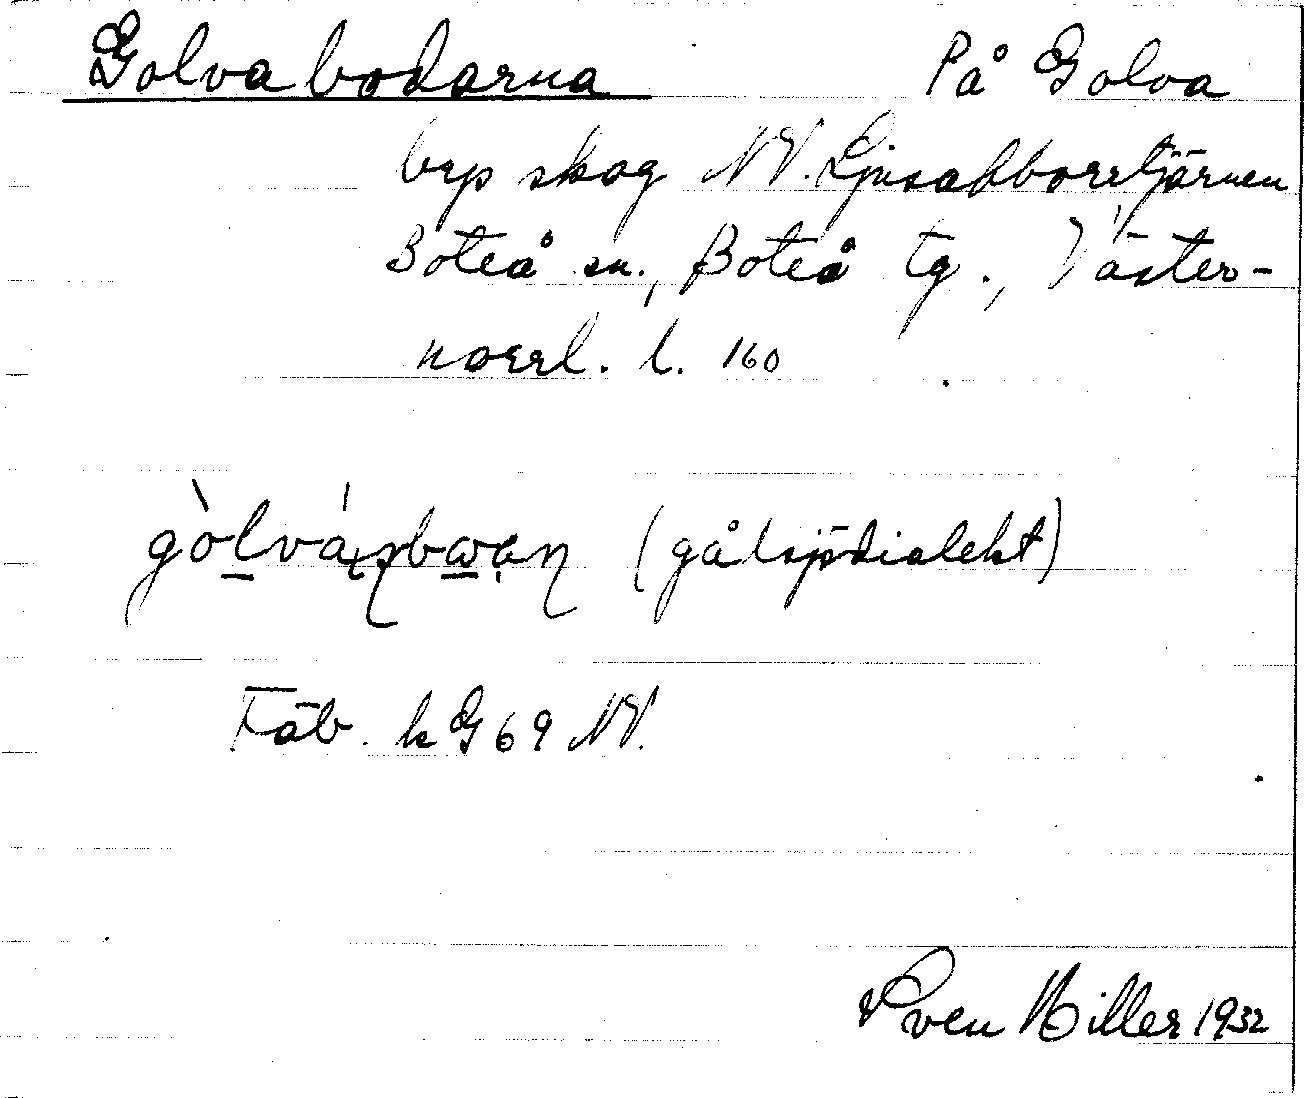 Golvabodarna På Golva
brp skog NV. Ljusabborrtjärnen
Boteå sn., Boteå tg., Väster-
norrl. l. 160
(gålsjödialekt)
Fäb. k G 69 NV.
Sven Hiller 1932